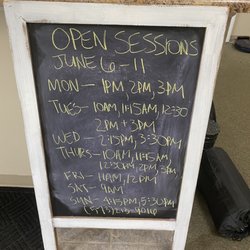 OPEN SESSIONS
JUNE 6-11
MON - 1PM, 2PM, 3PM
TUES - 10AM, 11:15AM, 12:30
2PM + 3PM
WED - 2:15PM, 3:30PM
THURS - 10AM, 11:15AM,
12:30PM, 2PM, 3PM
FRI - 11AM, 12PM
SAT - 9AM
SUN - 4:15PM, 5:30PM